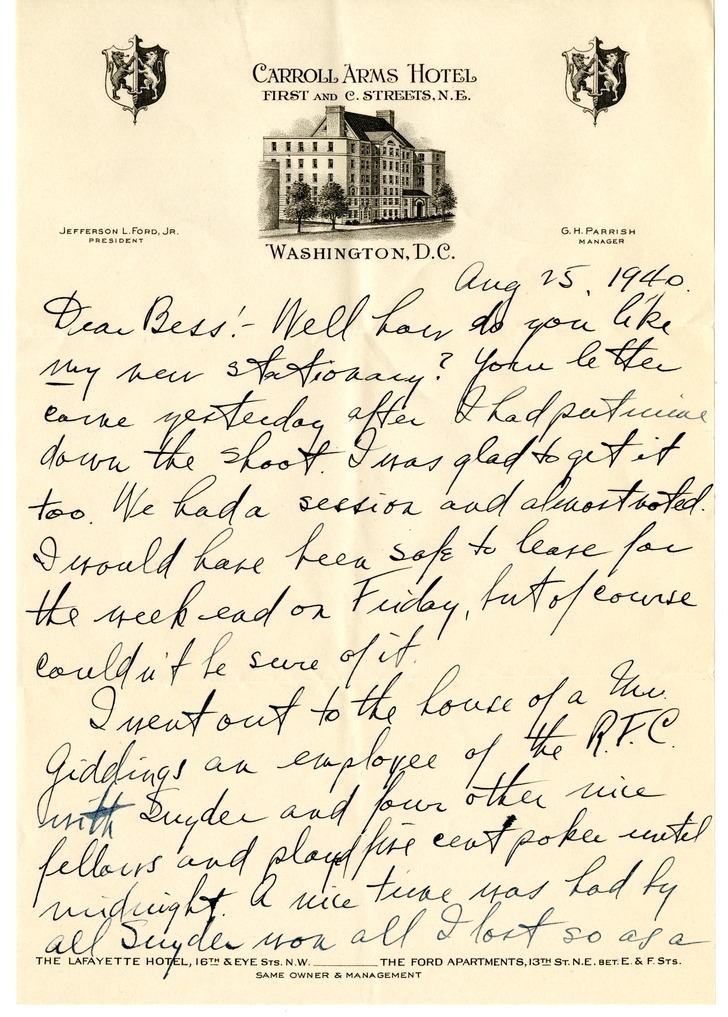 CARROLL ARMS HOTEL
FIRST AND C. STREETS, N.E.
JEFFERSON L. FORD, JR.
PRESIDENT
G. H. PARRISH
MANAGER
WASHINGTON, D.C.
Aug 25, 1940.
Dear Bess:- Well how do you like
my new stationary? Your letter
came yesterday after I had put mine
down the shoot. I was glad to get it
too. We had a session and almost voted.
I would have been safe to leave for
the week end on Friday, but of course
couldn't be sure of it.
I went out to the house of a Mr.
Giddings an employee of the R.F.C.
with Snyder and four other nice
fellows and played five cent poker until
midnight. A nice time was had by
all Snyder won all I lost so as a
THE LAFAYETTE HOTEL, 16TH & EYE STS. N.W. ______ THE FORD APARTMENTS, 13TH ST. N.E. BET. E. & F. STS.
SAME OWNER & MANAGEMENT